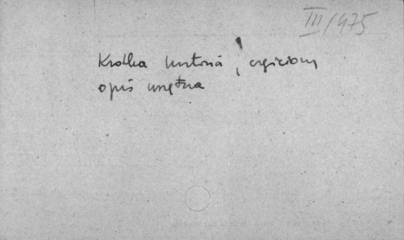 III/1975
Krótka historia i częściowy
opis wnętrza